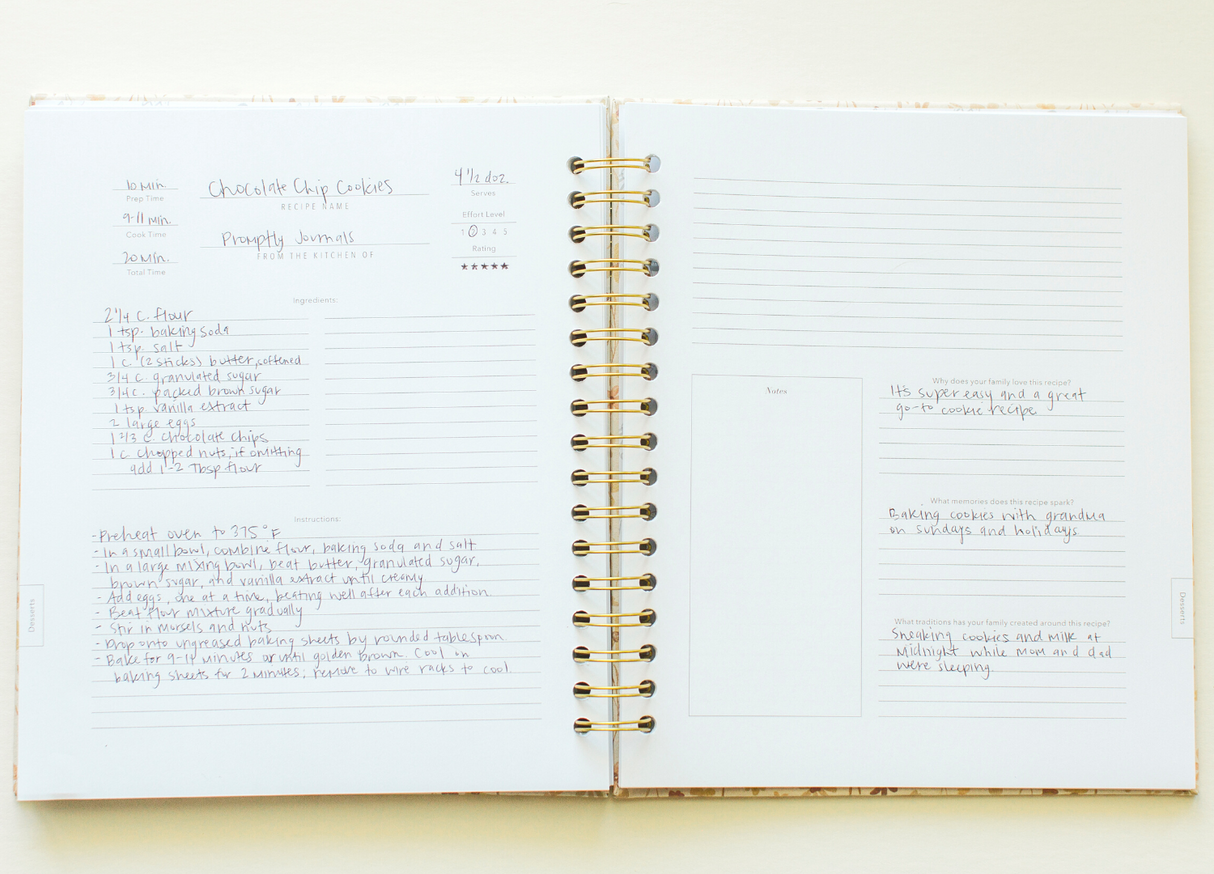 10 Min.
Prep Time
9-11 Min.
Cook Time
20 Min.
Total Time
Chocolate Chip Cookies
RECIPE NAME
Promptly Journals
FROM THE KITCHEN OF
4 1/2 doz.
Serves
Effort Level
1 2 3 4 5
Rating
★★★★★
Ingredients:
2 1/4 c. flour
1 tsp. baking soda
1 tsp. salt
1 c. (2 sticks) butter, softened
3/4 c. granulated sugar
3/4 c. packed brown sugar
1 tsp. vanilla extract
2 large eggs
1 2/3 c. chocolate chips
1 c chopped nuts, if omitting
add 1-2 Tbsp flour
Instructions:
- Preheat oven to 375°F
- In a small bowl, combine flour, baking soda and salt
- In a large mixing bowl, beat butter, granulated sugar,
brown sugar, and vanilla extract until creamy
- Add eggs, one at a time, beating well after each addition
- Beat flour mixture gradually
- Stir in morsels and nuts
- Drop onto ungreased baking sheets by rounded tablespoon
- Bake for 9-11 minutes or until golden brown. Cool on
baking sheets for 2 minutes; remove to wire racks to cool
Desserts
Notes
Why does your family love this recipe?
It's super easy and a great
go-to cookie recipe
What memories does this recipe spark?
Baking cookies with grandma
on sundays and holidays
What traditions has your family created around this recipe?
Sneaking cookies and milk at
Midnight while mom and dad
were sleeping.
Desserts